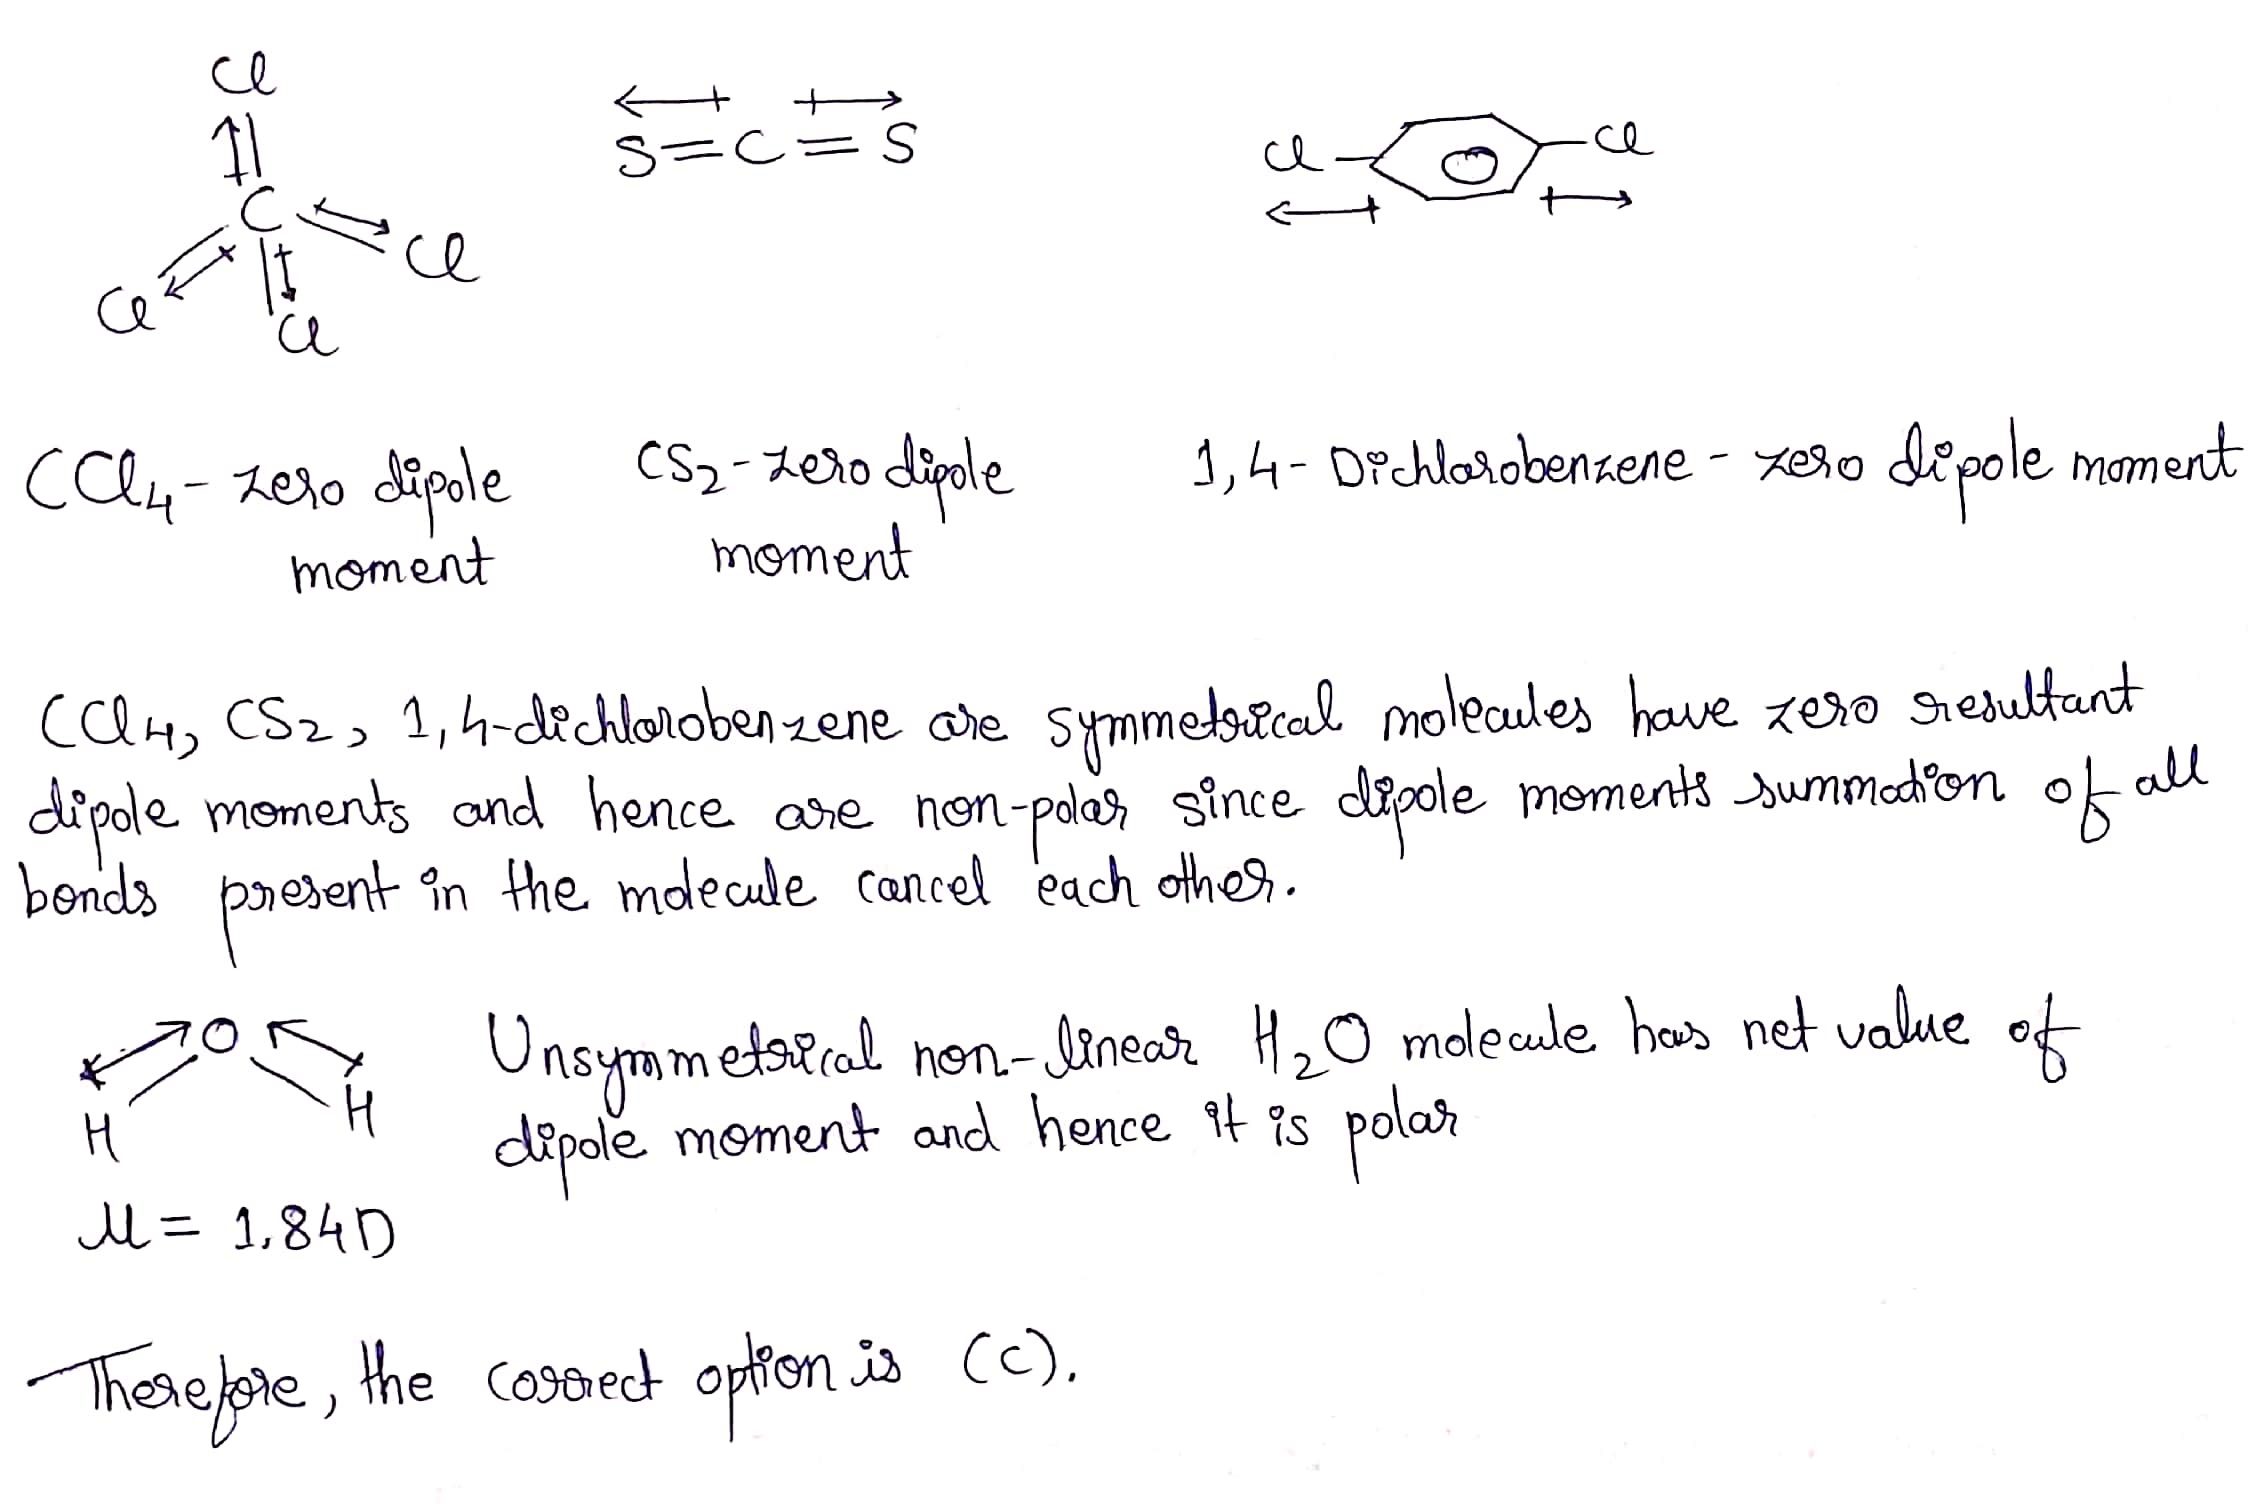 Cl
C
Cl
Cl
Cl
S=C=S
Cl
Cl
CCl4- zero dipole moment
CS2- zero dipole moment
1,4- Dichlorobenzene - zero dipole moment
CCl4, CS2, 1,4-dichlorobenzene are symmetrical molecules have zero resultant
dipole moments and hence are non-polar since dipole moments summation of all
bonds present in the molecule cancel each other.
O
H
H
μ = 1.84D
Unsymmetrical non-linear H2O molecule has net value of
dipole moment and hence it is polar
Therefore, the correct option is (c).